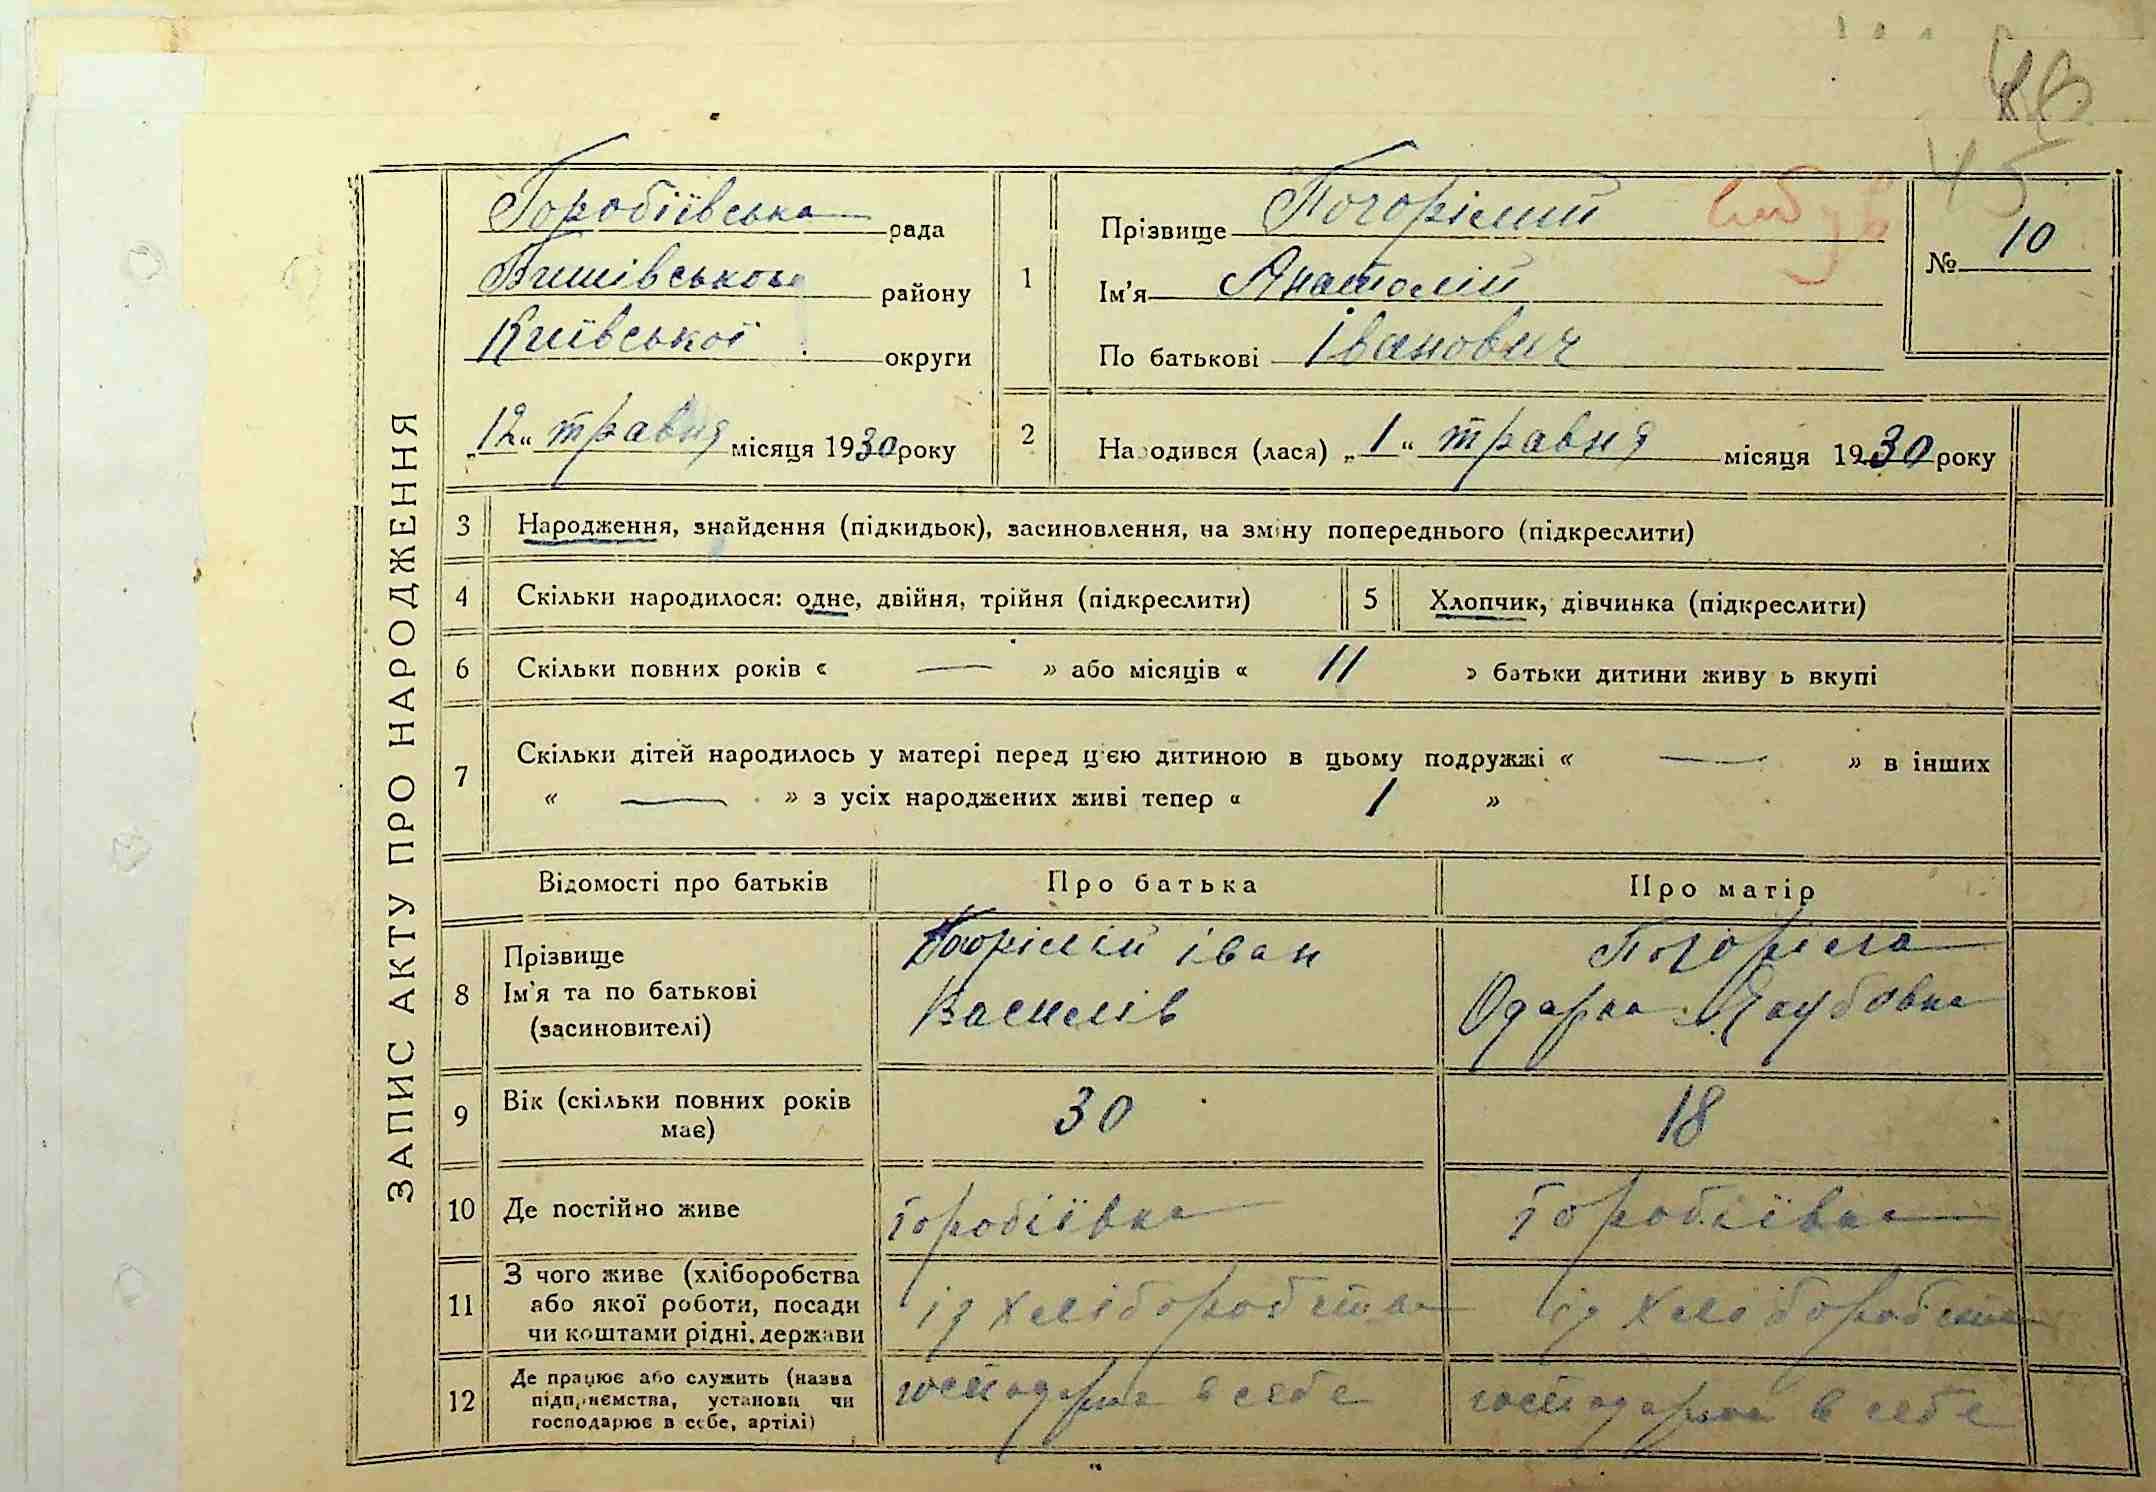 46
45
ЗАПИС АКТУ ПРО НАРОДЖЕННЯ
Горобіївська рада
Бишівського району
Київської округи
„12“ травня місяця 1930 року
1 Прізвище Погорілий
Ім'я Анатолій
По батькові Іванович
№ 10
вибув
2 Народився (лася) „1“ травня місяця 1930 року
3 Народження, знайдення (підкидьок), засиновлення, на зміну попереднього (підкреслити)
4 Скільки народилося: одне, двійня, трійня (підкреслити) 5 Хлопчик, дівчинка (підкреслити)
6 Скільки повних років « — » або місяців « 11 » батьки дитини живуть вкупі
7 Скільки дітей народилось у матері перед цією дитиною в цьому подружжі « — » в інших
« — » з усіх народжених живі тепер « 1 »
Відомості про батьків Про батька Про матір
8 Прізвище
Ім'я та по батькові
(засиновителі)
Погорілій Іван
Василів
Погоріла
Одарка Якубовна
9 Вік (скільки повних років
має)
30 18
10 Де постійно живе Горобіївка Горобіївка
11 З чого живе (хліборобства
або якої роботи, посади
чи коштами рідні, держави
із хліборобства із хліборобства
12 Де працює або служить (назва
підприємства, установи чи
господарює в себе, артілі)
господарює в себе господарює в себе